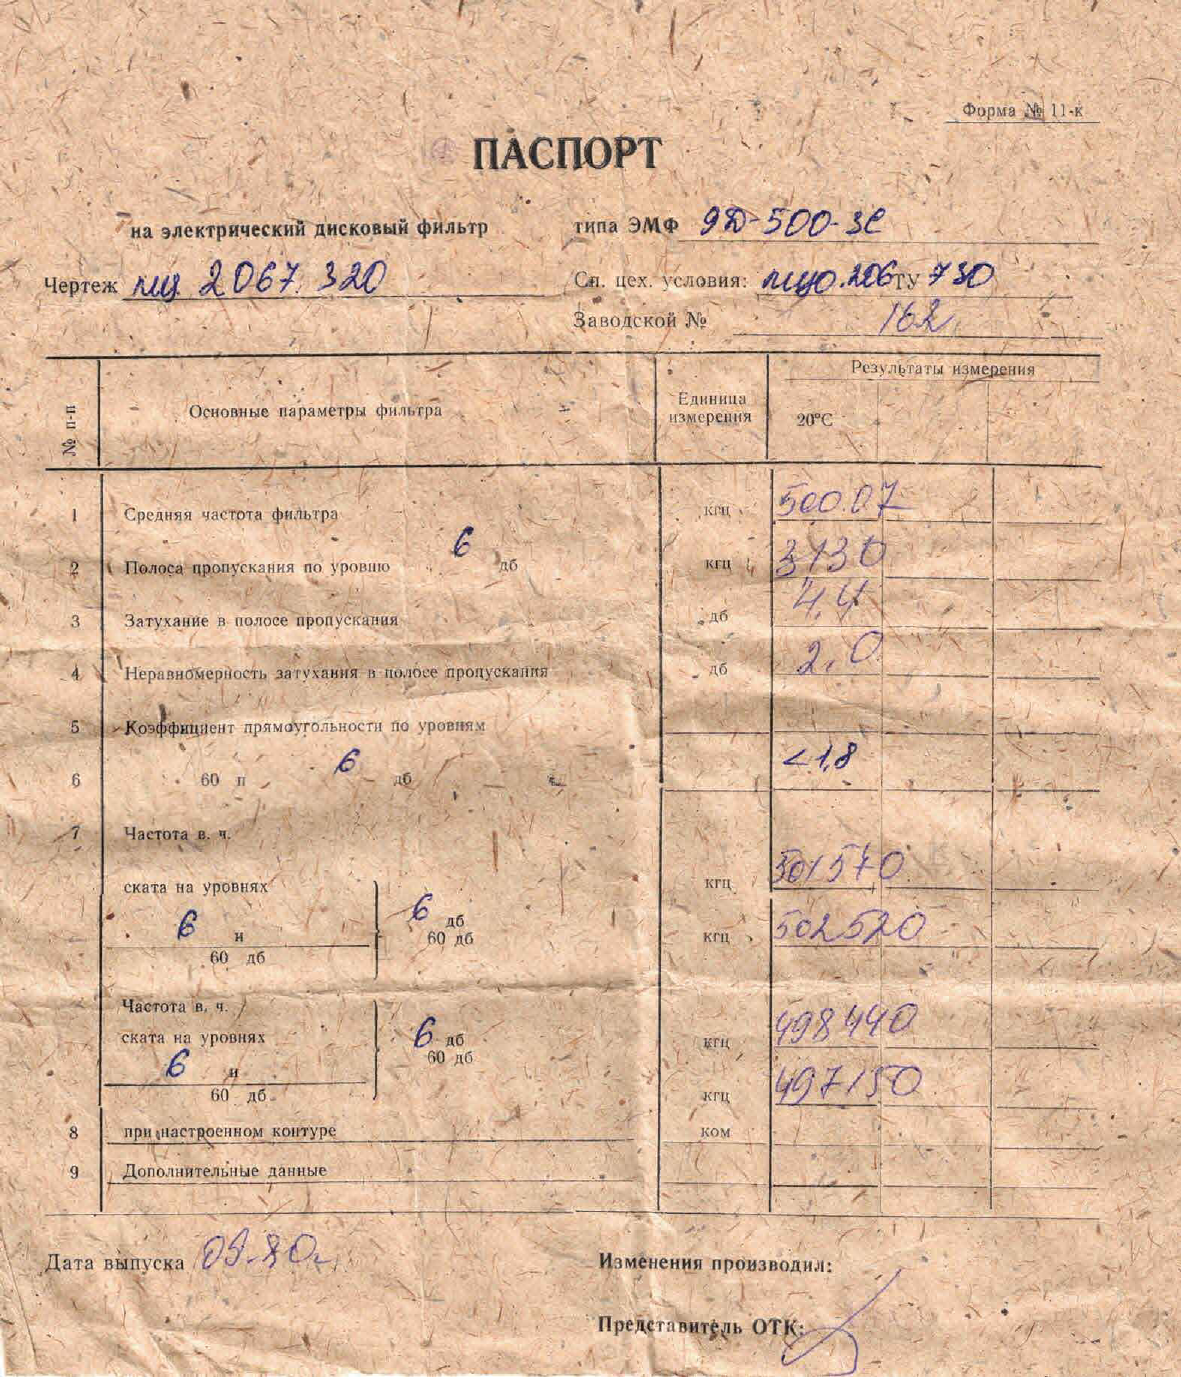 Форма № 11-к
ПАСПОРТ
на электрический дисковый фильтр типа ЭМФ 9Д-500-3С
Чертеж 2067.320 Сп. цех. условия: ТУ 730
Заводской № 162
№ п-п Основные параметры фильтра Единица измерения Результаты измерения
20°С
1 Средняя частота фильтра кгц 500.07
2 Полоса пропускания по уровню 6 дб кгц 3130
3 Затухание в полосе пропускания дб 4,4
4 Неравномерность затухания в полосе пропускания дб 2,0
5 Коэффициент прямоугольности по уровням
6 60 п 6 дб <1,8
7 Частота в. ч.
ската на уровнях кгц 501570
6 и 6 дб
60 дб 60 дб кгц 502520
Частота в. ч.
ската на уровнях 6 дб кгц 498440
6 и 60 дб
60 дб кгц 497150
8 при настроенном контуре ком
9 Дополнительные данные
Дата выпуска Изменения производил:
Представитель ОТК: